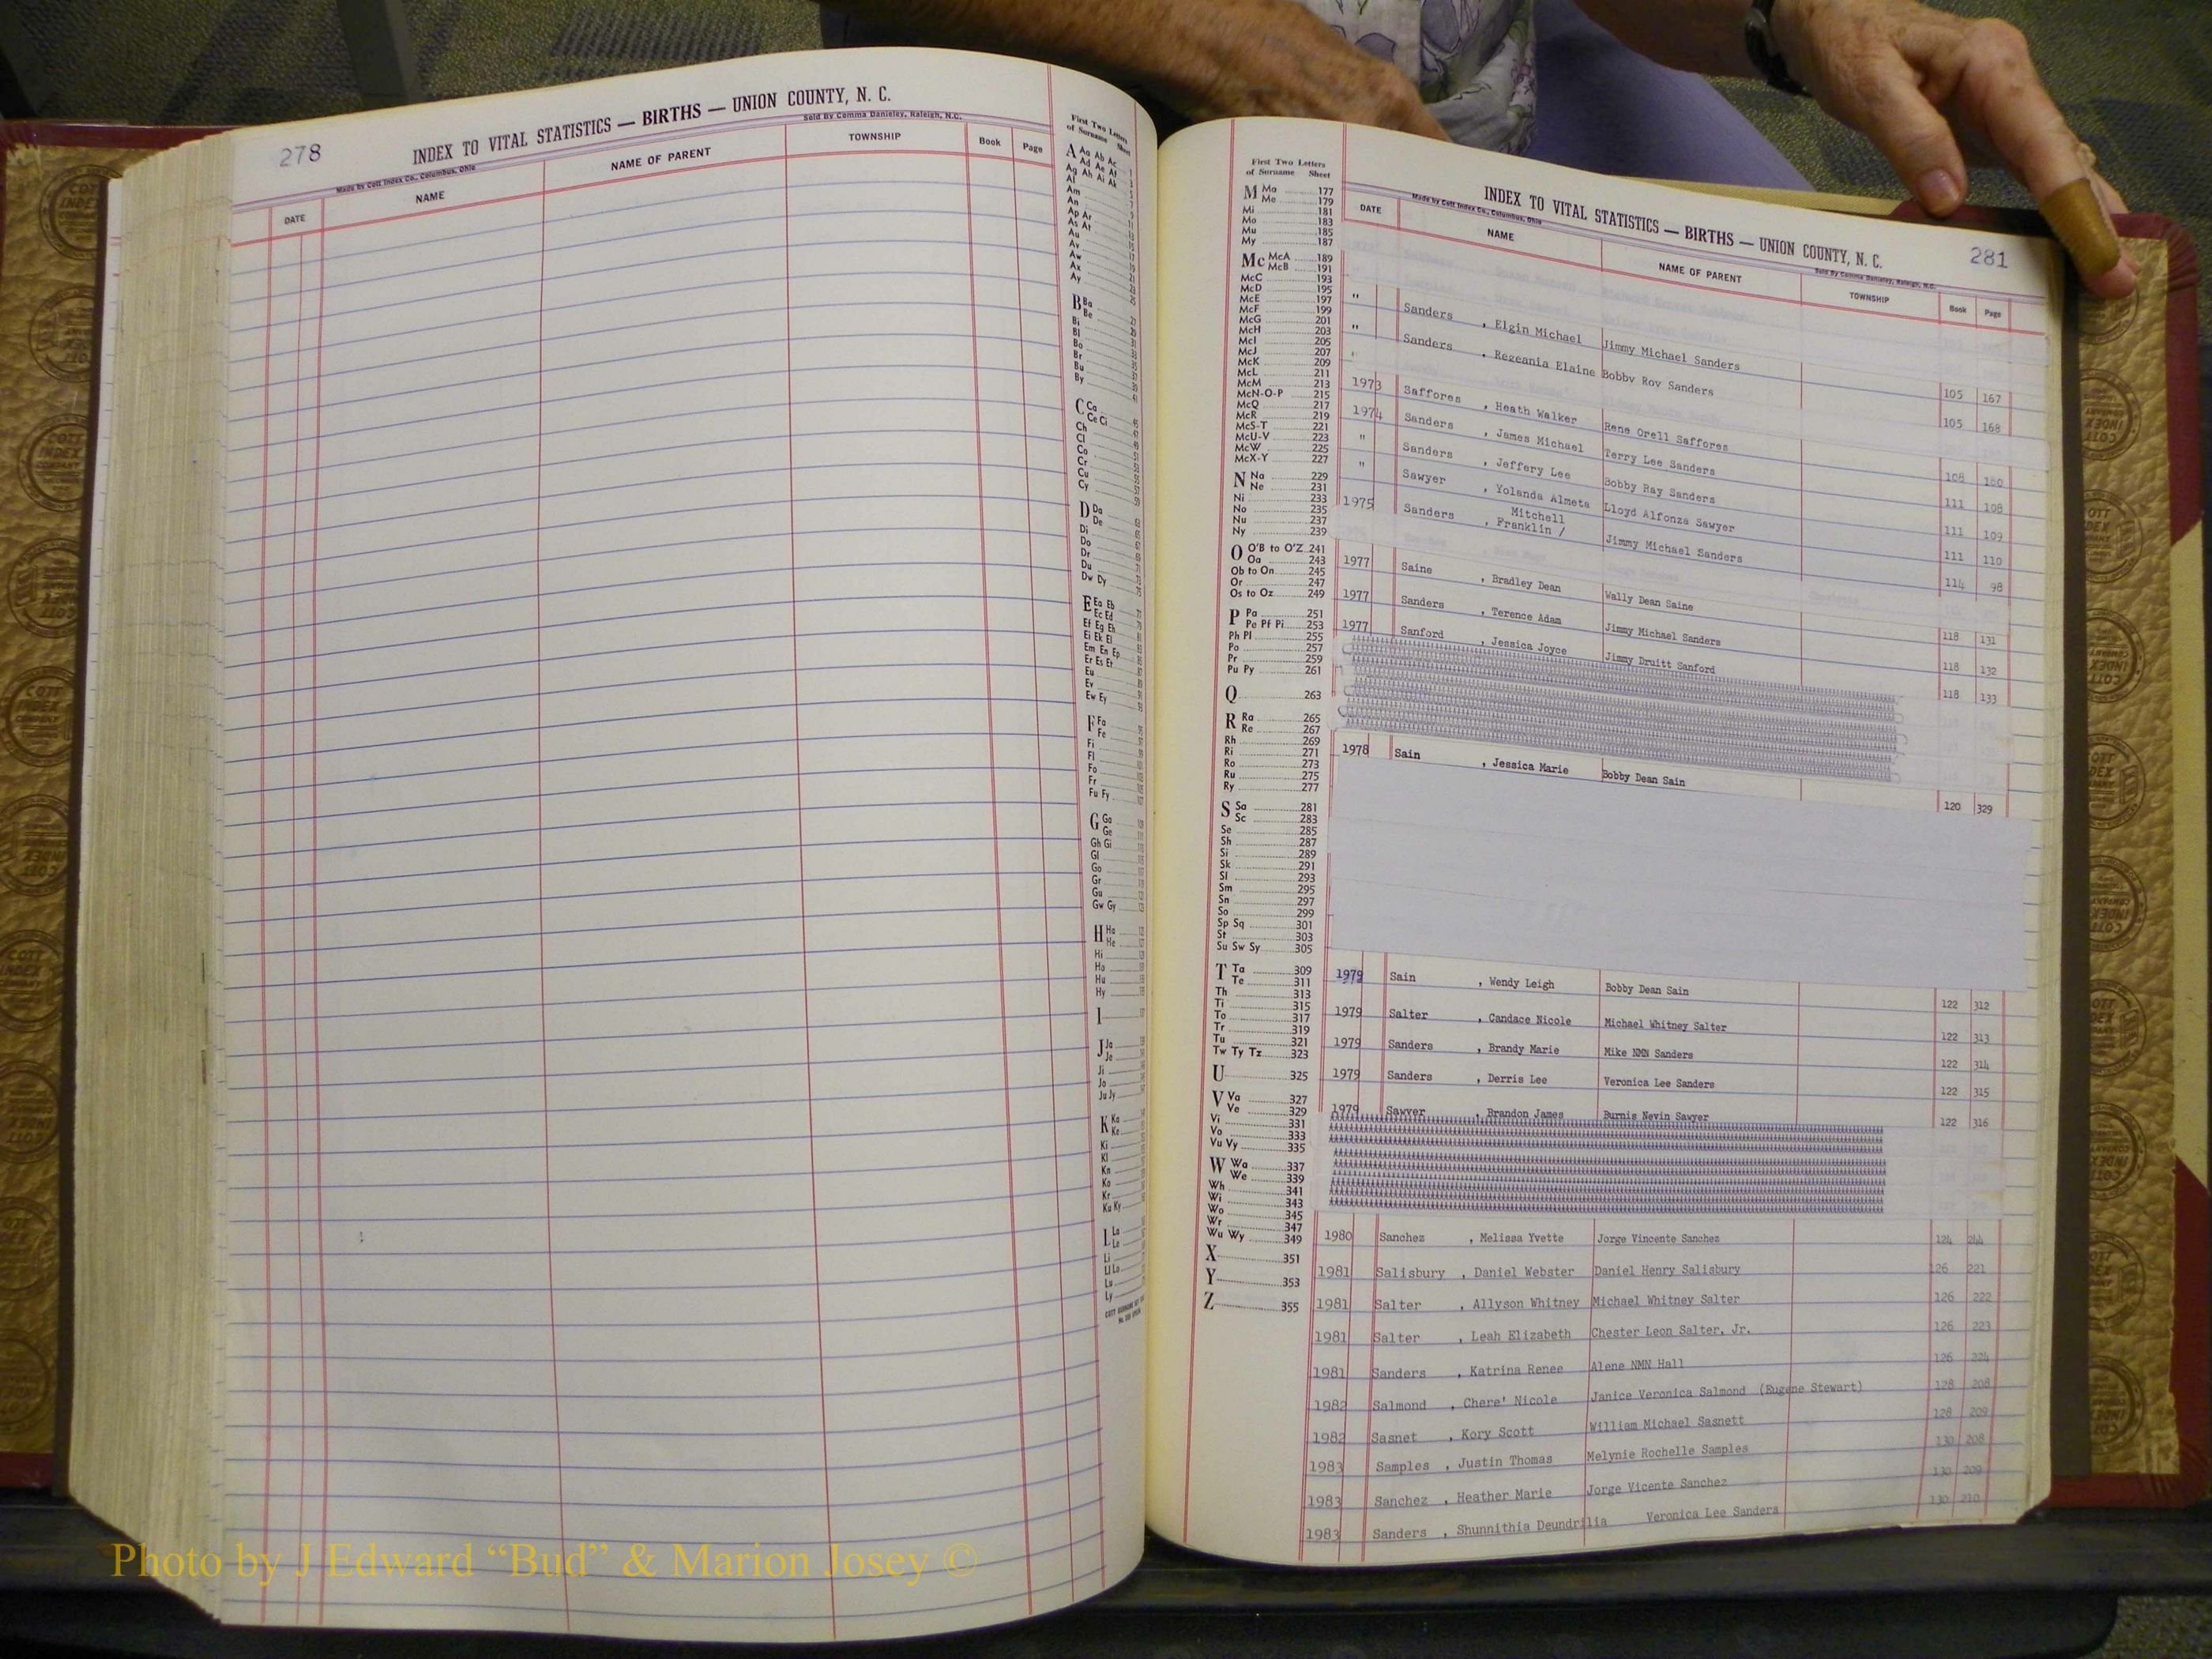 278
INDEX TO VITAL STATISTICS — BIRTHS — UNION COUNTY, N. C.
Made by Cott Index Co., Columbus, Ohio
Sold By Comma Danieley, Raleigh, N.C.
DATE NAME NAME OF PARENT TOWNSHIP Book Page
First Two Letters of Surname Sheet
A Aa Ab Ac
Ad Ae Af
Ag Ah Ai Ak
Al
Am
An
Ap Ar
As At
Au
Av
Aw
Ax
Ay
B Ba
Be
Bi
Bl
Bo
Br
Bu
By
C Ca
Ce Ci
Ch
Cl
Co
Cr
Cu
Cy
D Da
De
Di
Do
Dr
Du
Dw Dy
E Ea Eb
Ec Ed
Ef Eg Eh
Ei Ek El
Em En Ep
Er Es Et
Eu
Ev
Ew Ey
F Fa
Fe
Fi
Fl
Fo
Fr
Fu Fy
G Ga
Ge
Gh Gi
Gl
Go
Gr
Gu
Gw Gy
H Ha
He
Hi
Ho
Hu
Hy
I
J Ja
Je
Ji
Jo
Ju Jy
K Ka
Ke
Ki
Kl
Kn
Ko
Kr
Ku Ky
L La
Le
Li
Ll Lo
Lu
Ly
First Two Letters
of Surname Sheet
M Ma 177
Me 179
Mi 181
Mo 183
Mu 185
My 187
Mc McA 189
McB 191
McC 193
McD 195
McE 197
McF 199
McG 201
McH 203
McI 205
McJ 207
McK 209
McL 211
McM 213
McN-O-P 215
McQ 217
McR 219
McS-T 221
McU-V 223
McW 225
McX-Y 227
N Na 229
Ne 231
Ni 233
No 235
Nu 237
Ny 239
O O'B to O'Z 241
Oa 243
Ob to On 245
Or 247
Os to Oz 249
P Pa 251
Pe Pf Pi 253
Ph Pl 255
Po 257
Pr 259
Pu Py 261
Q 263
R Ra 265
Re 267
Rh 269
Ri 271
Ro 273
Ru 275
Ry 277
S Sa 281
Sc 283
Se 285
Sh 287
Si 289
Sk 291
Sl 293
Sm 295
Sn 297
So 299
Sp Sq 301
St 303
Su Sw Sy 305
T Ta 309
Te 311
Th 313
Ti 315
To 317
Tr 319
Tu 321
Tw Ty Tz 323
U 325
V Va 327
Ve 329
Vi 331
Vo 333
Vu Vy 335
W Wa 337
We 339
Wh 341
Wi 343
Wo 345
Wr 347
Wu Wy 349
X 351
Y 353
Z 355
INDEX TO VITAL STATISTICS — BIRTHS — UNION COUNTY, N. C.
281
Made by Cott Index Co., Columbus, Ohio
Sold By Comma Danieley, Raleigh, N.C.
DATE NAME NAME OF PARENT TOWNSHIP Book Page
" Sanders , Elgin Michael Jimmy Michael Sanders 105 167
" Sanders , Regeania Elaine Bobby Roy Sanders 105 168
1973 Saffores , Heath Walker Rene Orell Saffores 108 180
1974 Sanders , James Michael Terry Lee Sanders 111 108
" Sanders , Jeffery Lee Bobby Ray Sanders 111 109
" Sawyer , Yolanda Almeta Lloyd Alfonza Sawyer 111 110
Mitchell
1975 Sanders , Franklin / Jimmy Michael Sanders 114 98
1977 Saine , Bradley Dean Wally Dean Saine 118 131
1977 Sanders , Terence Adam Jimmy Michael Sanders 118 132
1977 Sanford , Jessica Joyce Jimmy Druitt Sanford 118 133
1978 Sain , Jessica Marie Bobby Dean Sain 120 329
1979 Sain , Wendy Leigh Bobby Dean Sain 122 312
1979 Salter , Candace Nicole Michael Whitney Salter 122 313
1979 Sanders , Brandy Marie Mike NMN Sanders 122 314
1979 Sanders , Derris Lee Veronica Lee Sanders 122 315
1979 Sawyer , Brandon James Burnis Nevin Sawyer 122 316
1980 Sanchez , Melissa Yvette Jorge Vincente Sanchez 124 244
1981 Salisbury , Daniel Webster Daniel Henry Salisbury 126 221
1981 Salter , Allyson Whitney Michael Whitney Salter 126 222
1981 Salter , Leah Elizabeth Chester Leon Salter, Jr. 126 223
1981 Sanders , Katrina Renee Alene NMN Hall 126 224
1982 Salmond , Chere' Nicole Janice Veronica Salmond (Eugene Stewart) 128 208
1982 Sasnet , Kory Scott William Michael Sasnett 128 209
1983 Samples , Justin Thomas Melynie Rochelle Samples 130 208
1983 Sanchez , Heather Marie Jorge Vicente Sanchez 130 209
1983 Sanders , Shunnithia Deundrilia Veronica Lee Sanders 130 210
Photo by J Edward “Bud” & Marion Josey ©